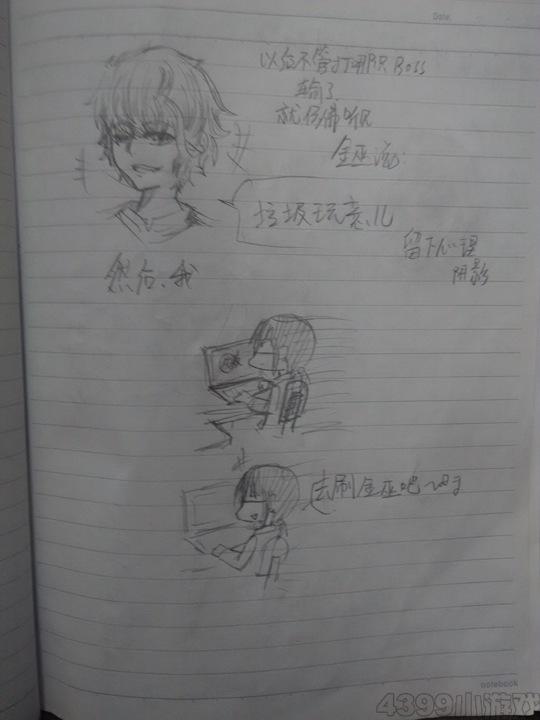 Date:
以后不管打哪只 Boss
输了
就仿佛听见
金巫说:
垃圾玩意儿
留下心理
阴影
然后、我
去刷金巫吧
notebook
4399小游戏